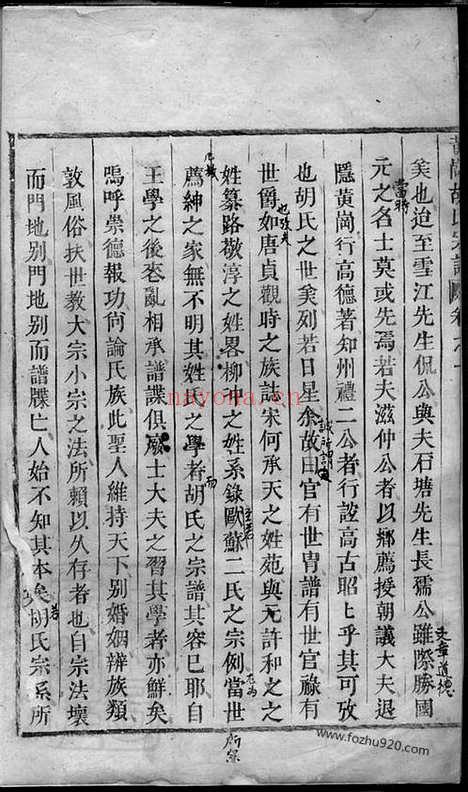 矣也迨至雪江先生侃公與夫石塘先生長孺公雖際勝國
文章道德
元之名士莫或先焉若夫滋仲公者以鄉薦授朝議大夫退
當時
隱黃崗行高德著知州禮二公者行誼高古昭上乎其可攷
也胡氏之世矣列若日星余故曰官有世胄譜有世官祿有
誠所謂
世爵如唐貞觀時之族誌宋何承天之姓苑與元許和之之
也攷夫
姓纂路敬淳之姓畧柳冲之姓系錄歐蘇二氏之宗例當世
至若
尤為
所宗
薦紳之家無不明其姓氏之學者胡氏之宗譜其容已耶自
凡我
而
王學之後袠亂相承譜諜俱廢士大夫之習其學者亦鮮矣
嗚呼崇德報功尚論氏族此聖人維持天下別婚姻辨族類
敦風俗扶世教大宗小宗之法所賴以久存者也自宗法壞
而門地別門地別而譜牒亡人始不知其本矣胡氏宗系所
若
nayona.cn
www.fozhu920.com